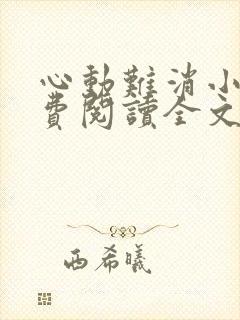 心動難消小
費閱讀全文
西希曦